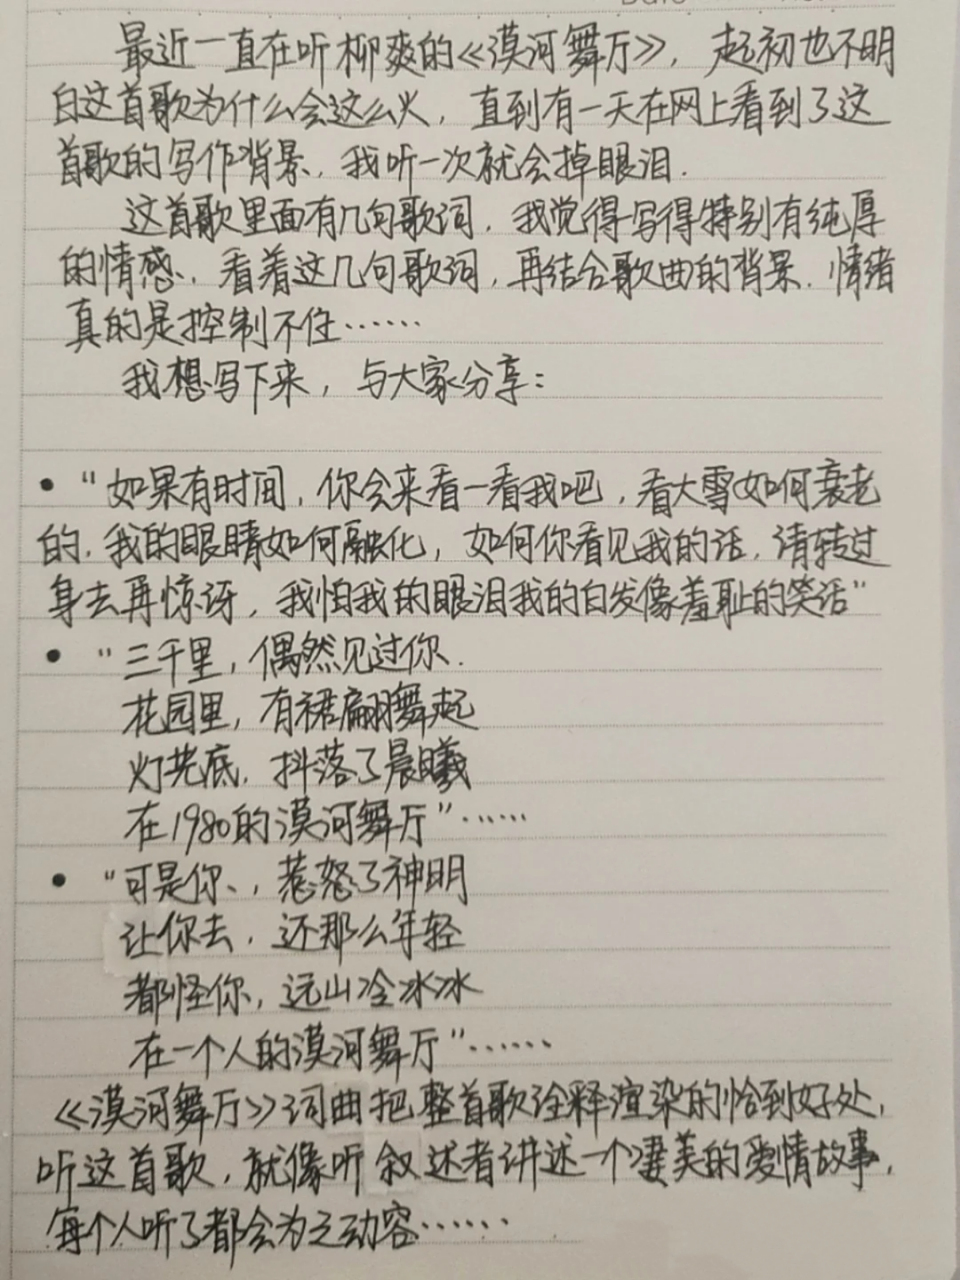 最近一直在听柳爽的《漠河舞厅》，起初也不明
白这首歌为什么会这么火，直到有一天在网上看到了这
首歌的写作背景，我听一次就会掉眼泪.
这首歌里面有几句歌词，我觉得写得特别有纯厚
的情感、看着这几句歌词，再结合歌曲的背景，情绪
真的是控制不住……
我想写下来，与大家分享：
• “如果有时间，你会来看一看我吧，看大雪如何衰老
的，我的眼睛如何融化，如何你看见我的话，请转过
身去再惊讶，我怕我的眼泪我的白发像羞耻的笑话”
• “三千里，偶然见过你.
花园里，有裙翩舞起
灯光底，抖落了晨曦
在1980的漠河舞厅”……
• “可是你、，惹怒了神明
让你去，还那么年轻
都怪你，远山冷冰冰
在一个人的漠河舞厅”……
《漠河舞厅》词曲把整首歌诠释渲染的恰到好处，
听这首歌，就像听叙述者讲述一个凄美的爱情故事，
每个人听了都会为之动容……